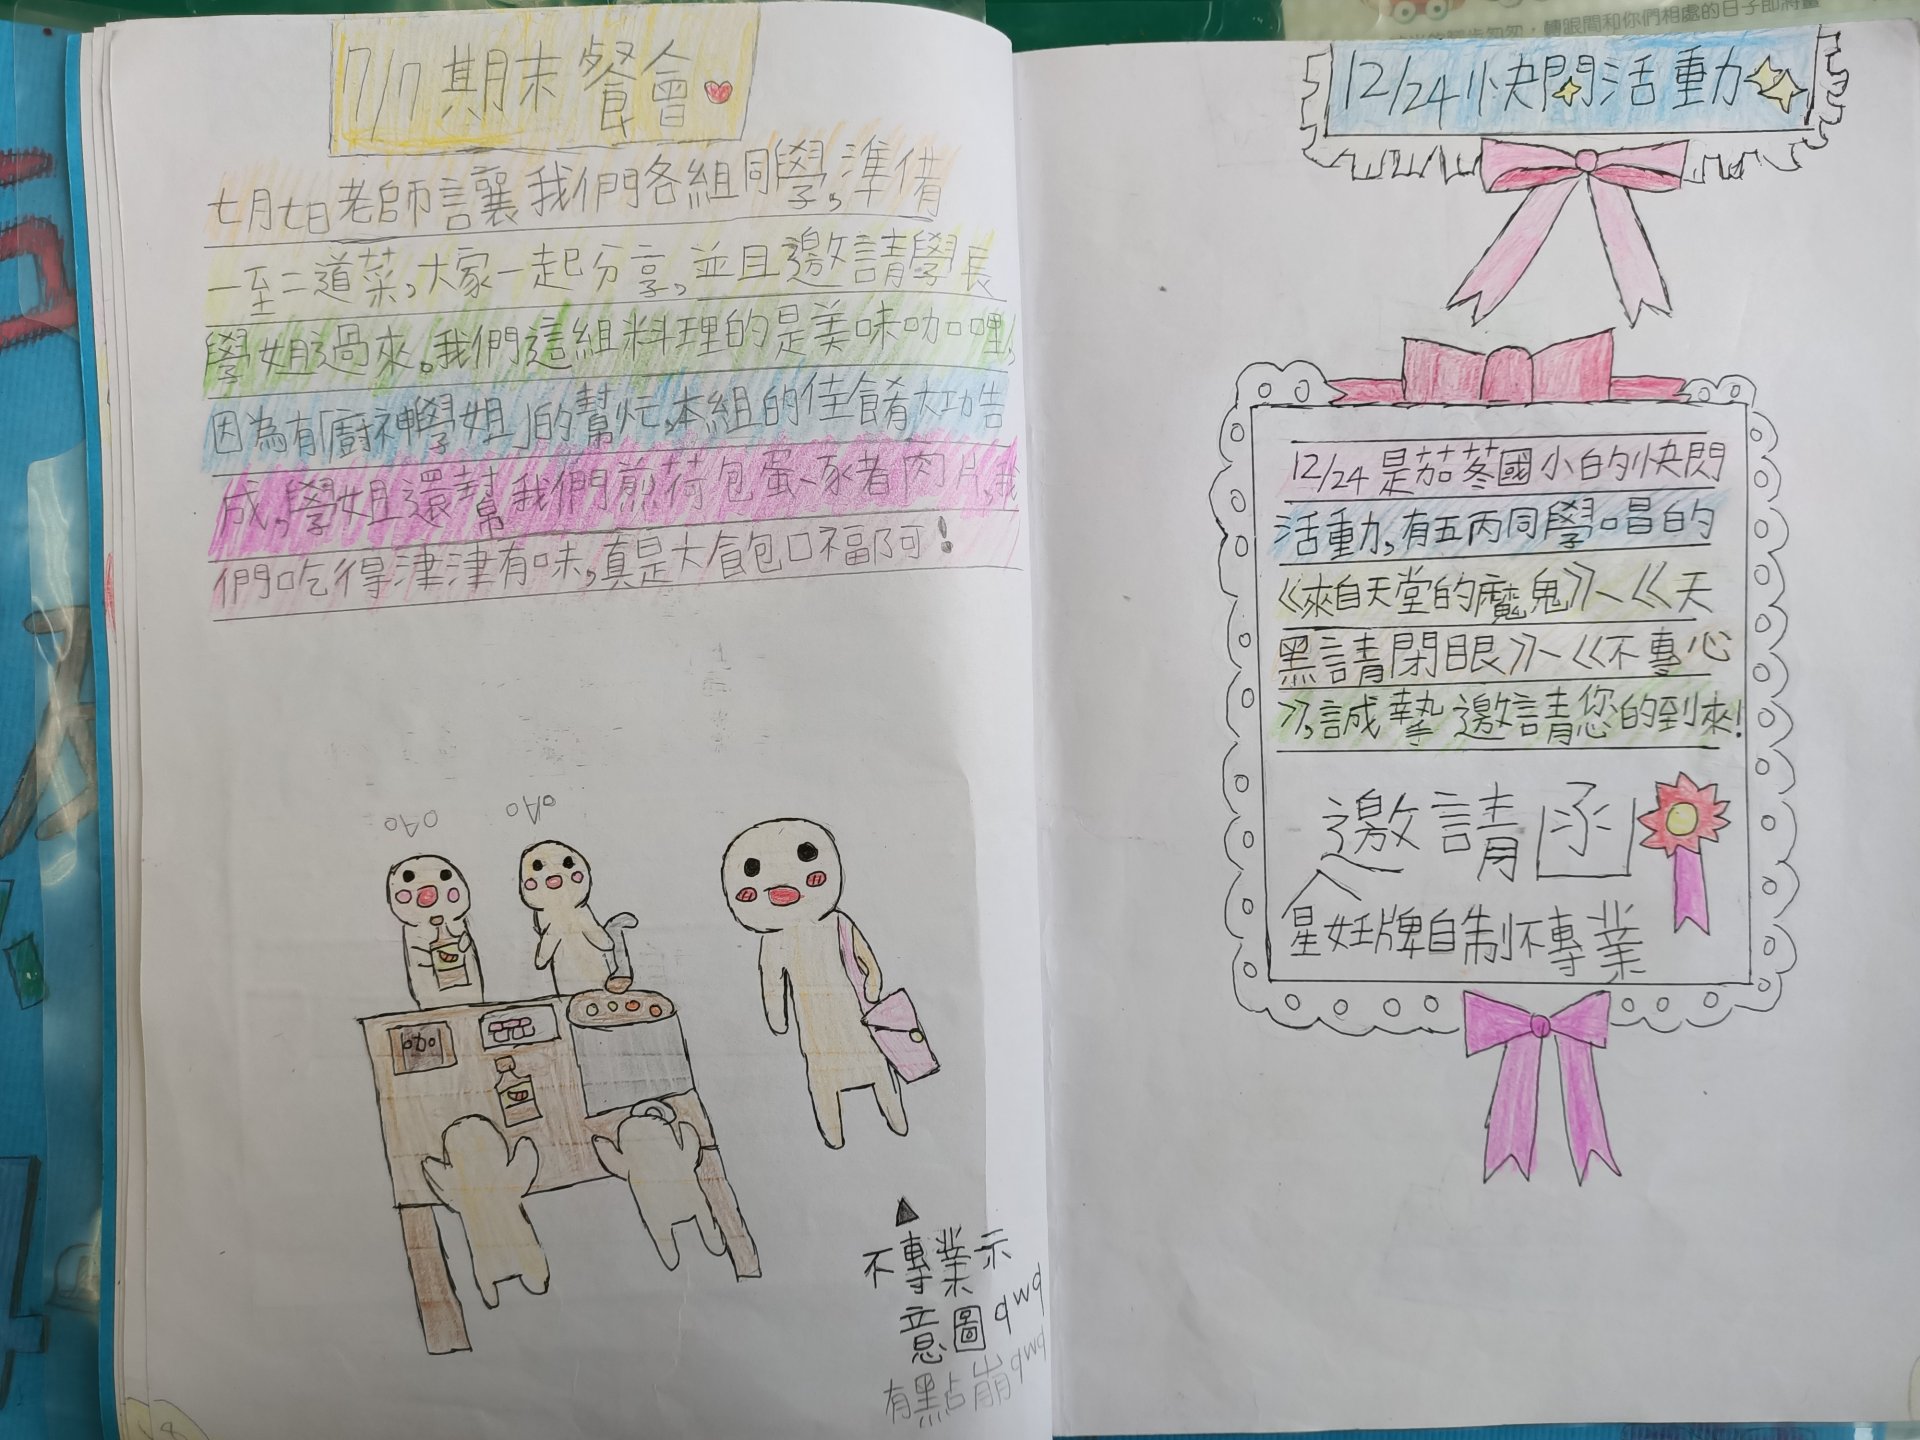 7/7期末餐會
七月七日老師讓我們各組同學,準備
一至二道菜,大家一起分享,並且邀請學長
學姐過來。我們這組料理的是美味咖哩,
因為有「廚神學姐」的幫忙,本組的佳餚大功告
成,學姐還幫我們煎荷包蛋、豕者肉片,我
們吃得津津有味,真是大飽口福阿!
oAo
oAo
咖
不專業示
意圖qwq
有點崩qwq
轉眼間和你們相處的日子即將畫
12/24快閃活動
12/24是茄苳國小的快閃
活動,有五丙同學唱的
《來自天堂的魔鬼》、《天
黑請閉眼》、《不專心
》,誠摯邀請您的到來!
邀請函
星妊牌自制不專業